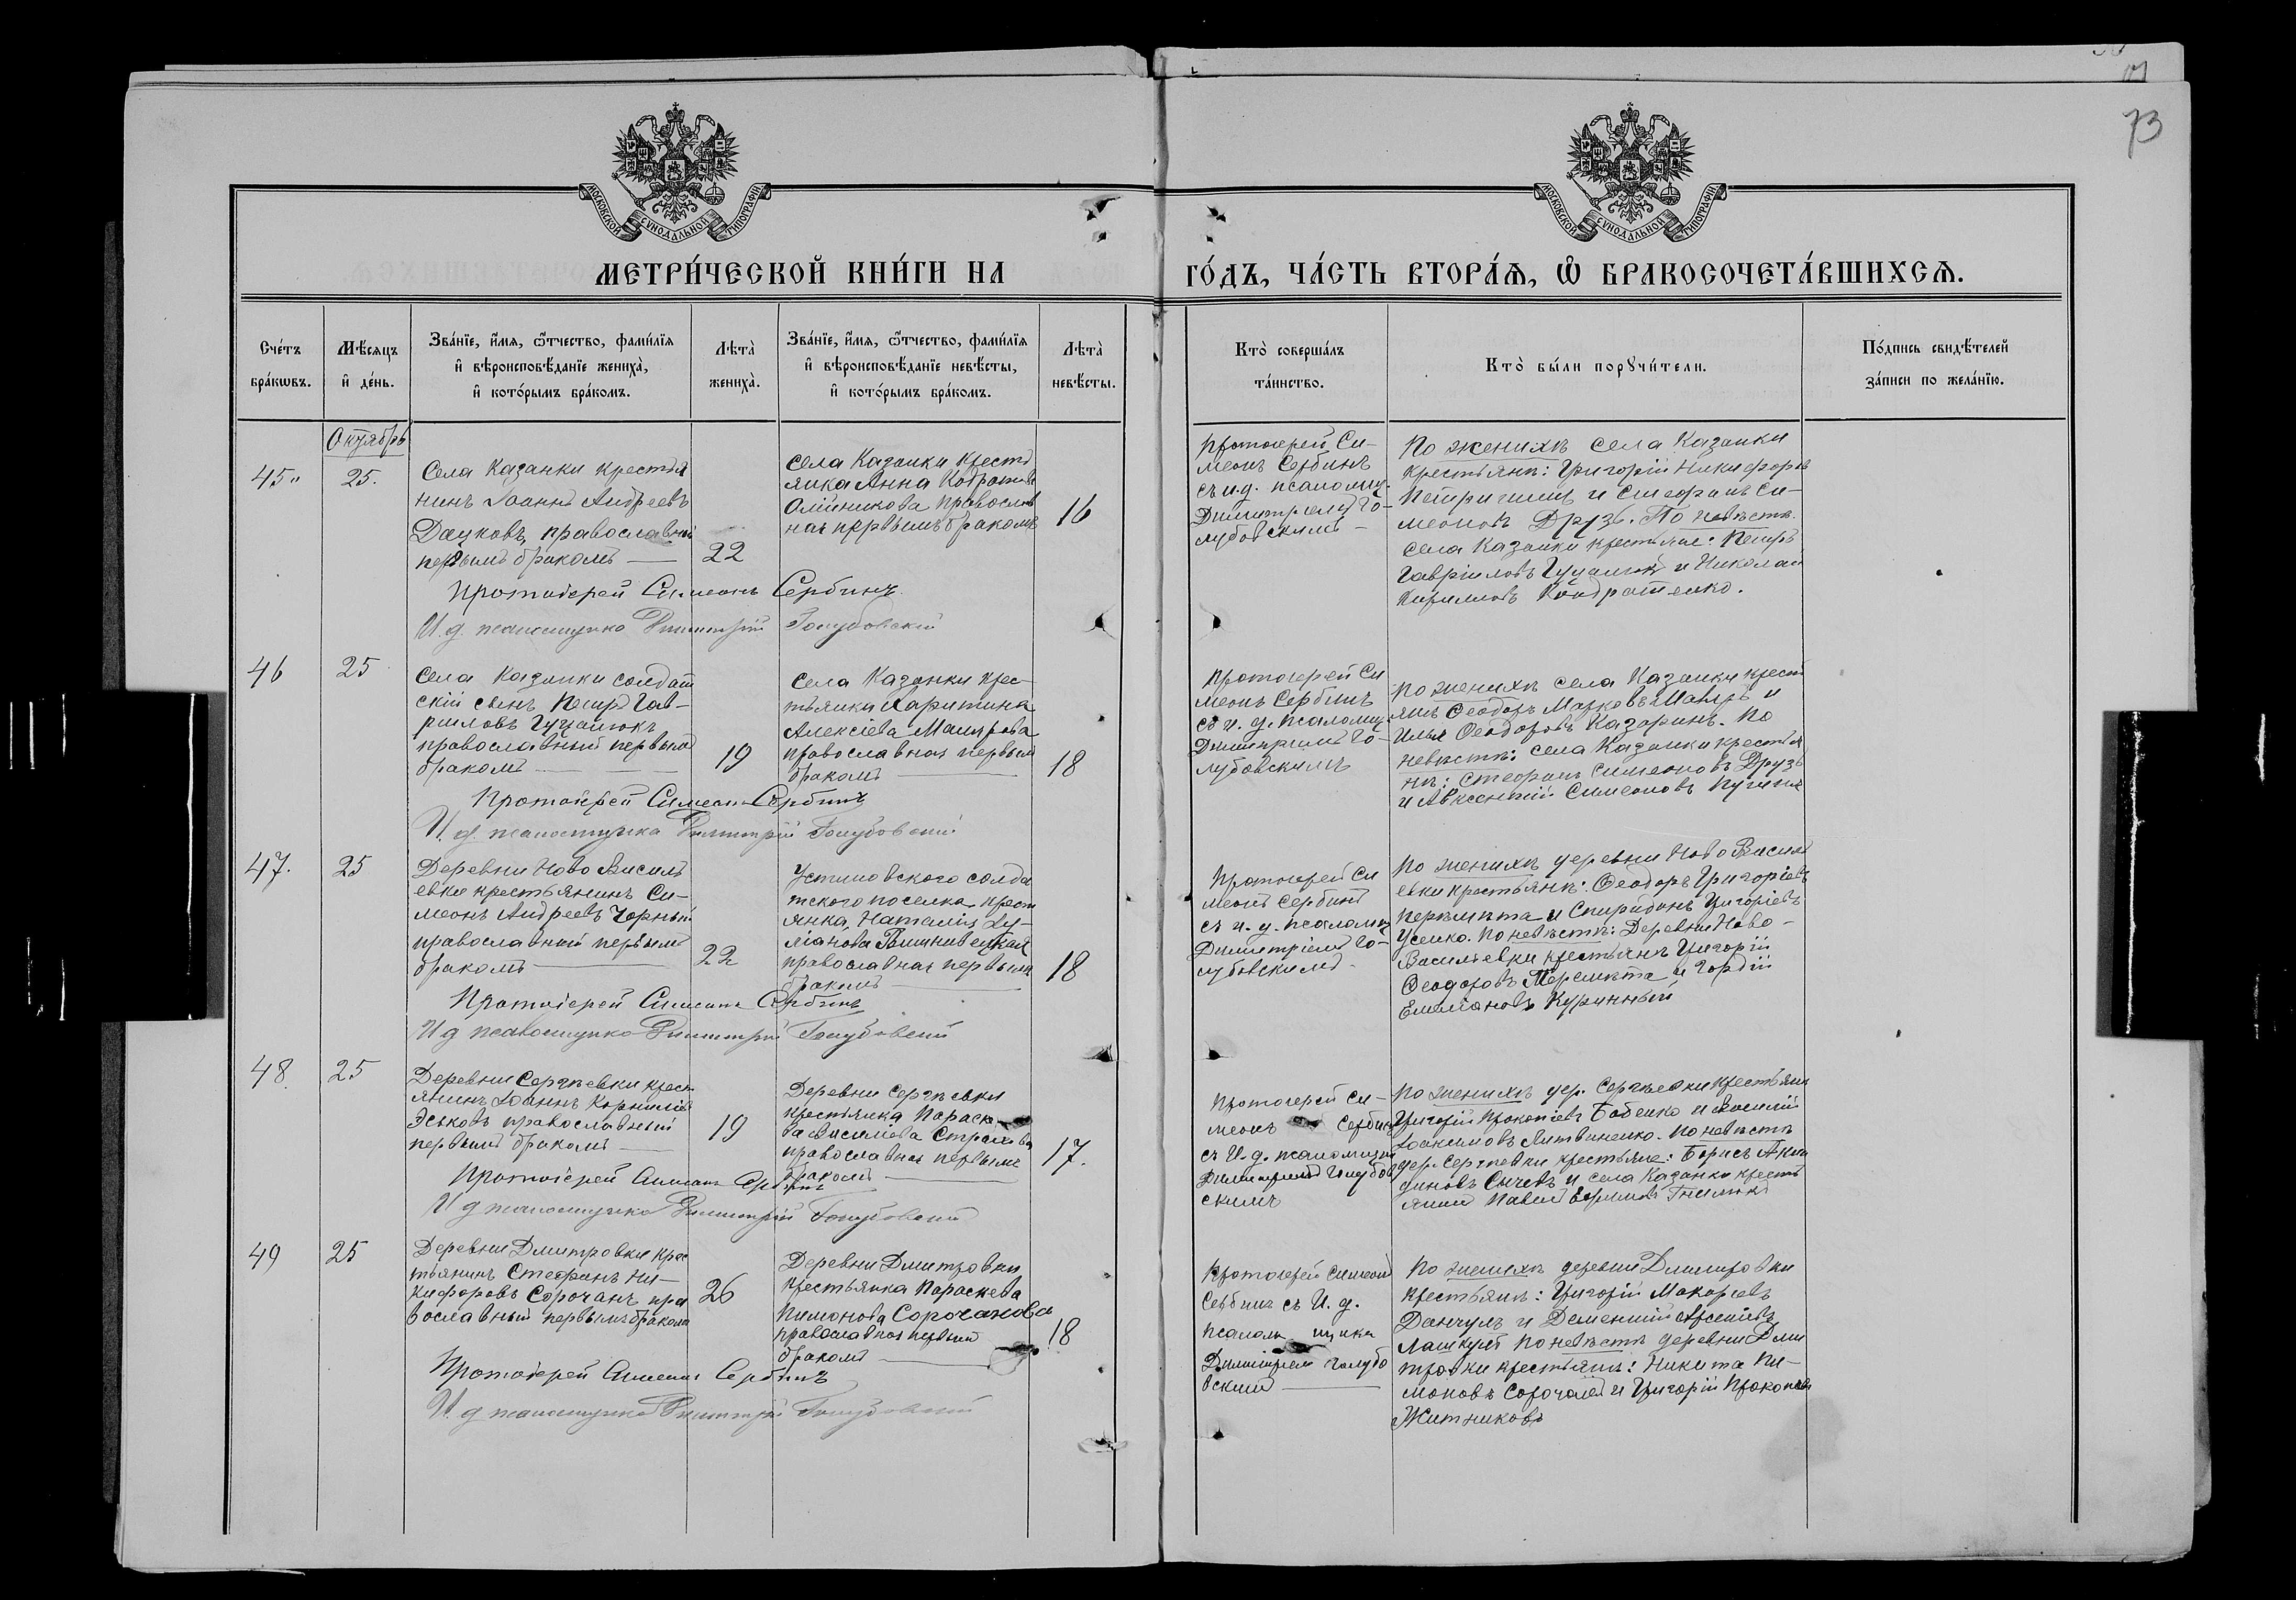 73
МОСКОВСКОЙ СУНОДАЛЬНОЙ ТИПОГРАФІИ
МОСКОВСКОЙ СУНОДАЛЬНОЙ ТИПОГРАФІИ
МЕТРИ́ЧЕСКОЙ КНИ́ГИ НА
ГО́ДЪ, ЧА́СТЬ ВТОРА́Ѧ, Ѽ БРАКОСОЧЕТА́ВШИХСѦ.
Сче́тъ
бра́кѡвъ.
Мѣ́сяцъ
и҆ де́нь.
Зва́нїе, и҆́мя, ѻ҆́тчество, фами́лїя
и҆ вѣроисповѣ́данїе жениха̀,
и҆ кото́рымъ бра́комъ.
Лѣта̀
жениха̀.
Зва́нїе, и҆́мя, ѻ҆́тчество, фами́лїя
и҆ вѣроисповѣ́данїе невѣ́сты,
и҆ кото́рымъ бра́комъ.
Лѣта̀
невѣ́сты.
Кто̀ соверша́лъ
та́инство.
Кто̀ бы́ли порꙋчи́тели.
По́дпись свидѣ́телей
за́писи по жела́нїю.
Октябрь
45
25.
Села Казанки крестья
нинъ Іоаннъ Андреевъ
Дацковъ, православный
первымъ бракомъ
22
села Казанки кресть
янка Анна
Олійникова православ
ная первымъ бракомъ
16
Протоіерей Си-
меонъ Сербинъ
съ и.д. псаломщ.
Димитріемъ Го-
лубовскимъ
По женихѣ села Казанки
крестьяне: Григорій Никифоровъ
и Стефанъ Си-
меоновъ Друзь. По невѣстѣ
села Казанки крестьяне: Петръ
Гавріиловъ и Николай
Кирилловъ Кондратенко.
Протоіерей Симеонъ Сербинъ
И.д. псаломщика Димитрій Голубовскій
46
25
Села Казанки солдат
скій сынъ Петръ Гав-
ріиловъ
православный первымъ
бракомъ
19
Села Казанки крес-
тьянка Харитина
Алексіева
православная первымъ
бракомъ
18
Протоіерей Си
меонъ Сербинъ
съ и.д. псаломщ.
Димитріемъ Го-
лубовскимъ
По женихѣ села Казанки крест
яне Ѳеодоръ Марковъ и
Илья Ѳеодоровъ Казаринъ. По
невѣстѣ: села Казанки крестья
не: Стефанъ Симеоновъ Друзь
и Авксентій Симеоновъ
Протоіерей Симеонъ Сербинъ
И.д. псаломщика Димитрій Голубовскій
47.
25
Деревни Ново Василь
евки крестьянинъ Си-
меонъ Андреевъ Чорный
православный первымъ
бракомъ
22
Устиновского солда
тского поселка крест
янка, Наталія
православная первымъ
бракомъ
18
Протоіерей Си
меонъ Сербинъ
съ и.д. псаломщ
Димитріемъ Го-
лубовскимъ
По женихѣ деревни Ново Василь
евки крестьяне: Ѳеодоръ Григоріевъ
и Спиридонъ Григоріевъ
Усенко. По невѣстѣ: Деревни Ново-
Васильевки крестьяне Григорій
Ѳеодоровъ и Гордій
Емеліановъ Куринный
Протоіерей Симеонъ Сербинъ
И д псаломщика Димитрій Голубовскій
48.
25
Деревни Сергѣевки крест
янинъ Іоаннъ Корниліев
Эськовъ православный
первымъ бракомъ
19
Деревни Сергѣевки
крестьянка Параске
ва Василіева
православная первымъ
бракомъ
17.
Протоіерей Си-
меонъ Сербинъ
съ И.д. псаломщик
Димитріемъ Голубов
скимъ
По женихѣ дер. Сергѣевки крестьяне
Григорій Прокопіевъ Бабенко и Василій
Іоакимовъ Литвиненко. По невѣстѣ
дер. Сергѣевки крестьяне: Борисъ Акин
диновъ Сычевъ и села Казанки кресть
янинъ Павелъ
Протоіерей Симеонъ Сербинъ
И д псаломщика Димитрій Голубовскій
49
25
Деревни Дмитровки крес
тьянинъ Стефанъ Ни-
кифоровъ Сорочанъ пра
вославный первымъ бракомъ
26
Деревни Дмитровки
крестьянка Параскева
Пимонова Сорочанова
православная первымъ
бракомъ
18
Протоіерей Симеонъ
Сербинъ съ И.д.
псалом щика
Димитріем Голубо
вскимъ
По женихѣ деревни Дмитровки
крестьяне: Григорій Макаріевъ
Данчулъ и Дементій Арсеніевъ
По невѣстѣ деревни Дми
тровки крестьяне: Никита Пи-
моновъ Сорочанъ и Григорій Прокопіевъ
Житниковъ
Протоіерей Симеонъ Сербинъ
И д псаломщика Димитрій Голубовскій